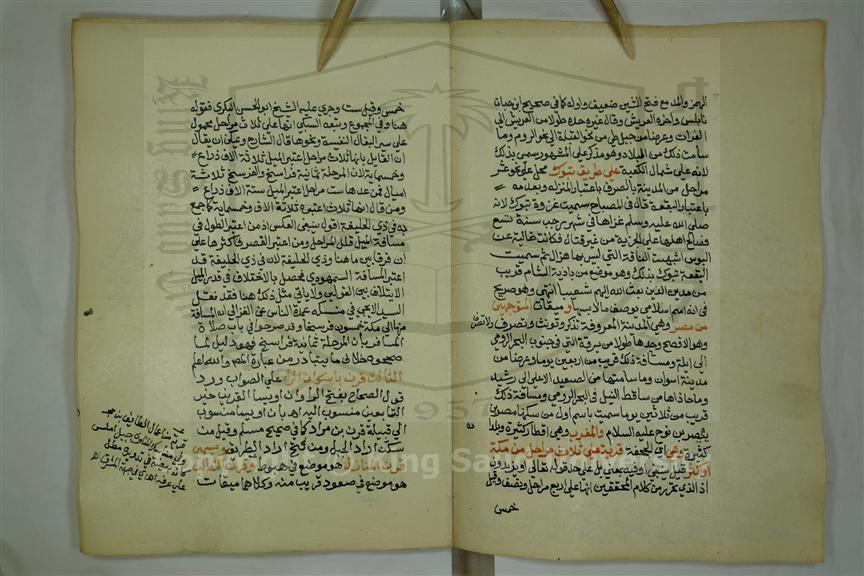 الهمز والمد مع فتح الشين ضعيف واوله كما في صحيح ابن حبان
نابلس واخره العريش وقال غيره حده طولا من العريش الى
الفرات وعرضا من جبل طي من نحو القبلة الى نحو الروم وما
سامت ذلك من البلاد وهو مذكر على المشهور سمي بذلك
لانه على شمال الكعبة على طريق تبوك محل على نحو عشر
مراحل من المدينة بالصرف باعتبار المنزلة وبعدمه
باعتبار البقعة قال في المصباح سميت غزوة تبوك لانه
صلى الله عليه وسلم غزاها في شهر رجب سنة تسع
فصالح اهلها على الجزية من غير قتال فكانت خالية عن
البوس اشبهت الناقة التي ليس بها هزال ثم سميت
البقعة تبوك بذلك وهو موضع من بادية الشام قريب
من مدين الذين بعث الله اليهم شعيبا انتهى وهو صريح
في انه اسم اسلامي وميقات المتوجهين
من مصر وهي المدينة المعروفة تذكر وتونث وتصرف
وهو الافصح وحدها طولا من برقة التي في جنوب البحر الرومي
الى ايلة ومسافة ذلك قريب من اربعين يوما وعرضا من
مدينة اسوان وما سامتها من الصعيد الاعلى الى رشيد
وما حاذاها من ساقط النيل في البحر الرومي ومسافة ذلك
قريب من ثلاثين يوما سميت باسم اول من سكنها مصر بن
بن نوح عليه السلام والمغرب وهي اقطار كثيرة وبلد
كثيرة وهي الجحفة قرية على ثلاث مراحل من مكة
او اكثر قيل ينبغي او فيه بمعنى بل على حد قوله تعالى او يزيدون
اذ الذي تحرر من كلام المحققين انها على اربع مراحل ونصف وقيل
خمس
خمس وقيل ست وجرى عليه الشيخ ابو الحسن البكري فقوله
هنا وفي المجموع وتبعه السبكي انها على ثلاث مراحل محمول
على سير البغال النفيسة ونحوها قال الشارح ويمكن ان يقال
ان القايل بانها ثلاث مراحل اعتبر الميل ثلاثة الاف ذراع
وخمسماية لان المرحلة ثمانية فراسخ والفرسخ ثلاثة
اميال فمن عدها ست مراحل اعتبر الميل ستة الاف ذراع
ومن قال انها ثلاث اعتبره ثلاثة الاف وخمسماية كما جمع
به في ذي الحليفة اقول ينبغي العكس اذ من اعتبر الطول في
مسافة الميل قلل المراحل ومن اعتبر القصر كثرها على
ان فرقا بين ما هنا وذي الحليفة لان في ذي الحليفة قد
اعتبر المسافة السمهودي فحصل بالاختلاف في قدر الميل
الايتلاف بين القولين ولا ياتي مثل ذلك هنا فقد نقل
السيد الايجي في منسكه عمدة الناس عن الغزالي ان المسافة
منها الى مكة خمسون فرسخا وقد صرحوا في باب صلاة
المسافر بان المرحلة ثمانية فراسخ فهو دليل لما
صححوه خلافا ما يتبادر من عبارة المص والله اعلم
الثالث قرن باسكان الراء على الصواب وورد
قول الصحاح بفتح الراء وان اويسا القرني خير
التابعين منسوب اليه اهـ بان اويسا منسوب
الى قبيلة قرن بن مراد كما في صحيح مسلم وقيل من
سكن اراد الجبل ومن فتح اراد الطريق ويسمى
قرن المنازل هو موضع في هبوط وقرن الثعالب
هو موضع في صعود قريب منه وكلاهما ميقات